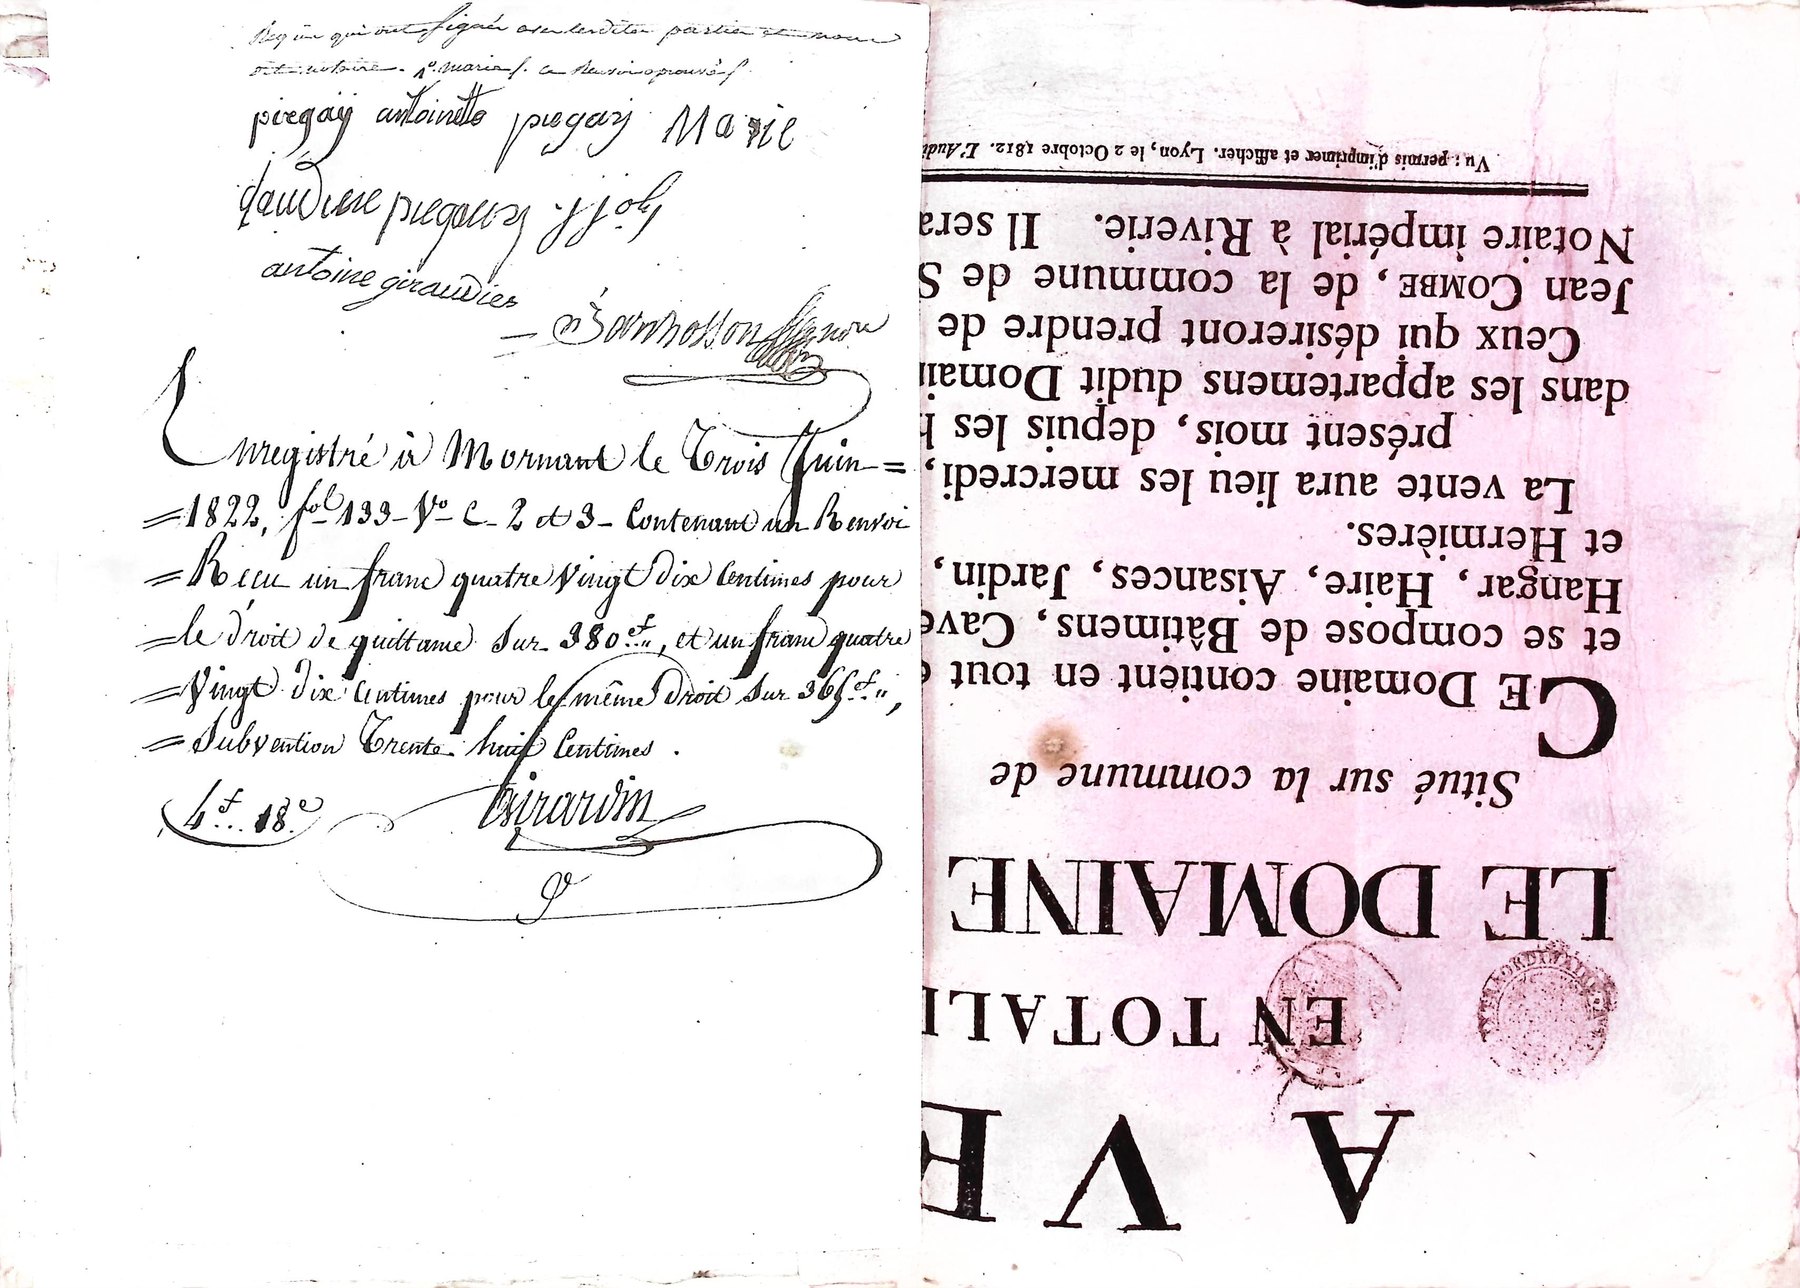 requis qui ont signés avec lesdites parties et nous
dit notaire. 1º. marie f.
piegaÿ antoinette piegaij Marie
gaudiere piegaus jjoly
antoine giraudier
Enregistré à Mornant le Trois Juin =
= 1822, fol 133 Vº C. 2 et 3 Contenant un Renvoi
= Recu un franc quatre Vingt dix Centimes pour
= le droit de quittance Sur 380 f.., et un franc quatre
= Vingt dix Centimes pour le même droit Sur 365 f..,
= Subvention Trente huit Centimes.
4 f.. 18 c
Girardin
A VE
EN TOTALI
LE DOMAINE
Situé sur la commune de
CE Domaine contient en tout
et se compose de Bâtimens, Cave
Hangar, Haire, Aisances, Jardin,
et Hermières.
La vente aura lieu les mercredi,
présent mois, depuis les h
dans les appartemens dudit Domain
Ceux qui désireront prendre de
Jean COMBE, de la commune de S
Notaire impérial à Riverie. Il sera
Vu : permis d'imprimer et afficher. Lyon, le 2 Octobre 1812. L'Audi